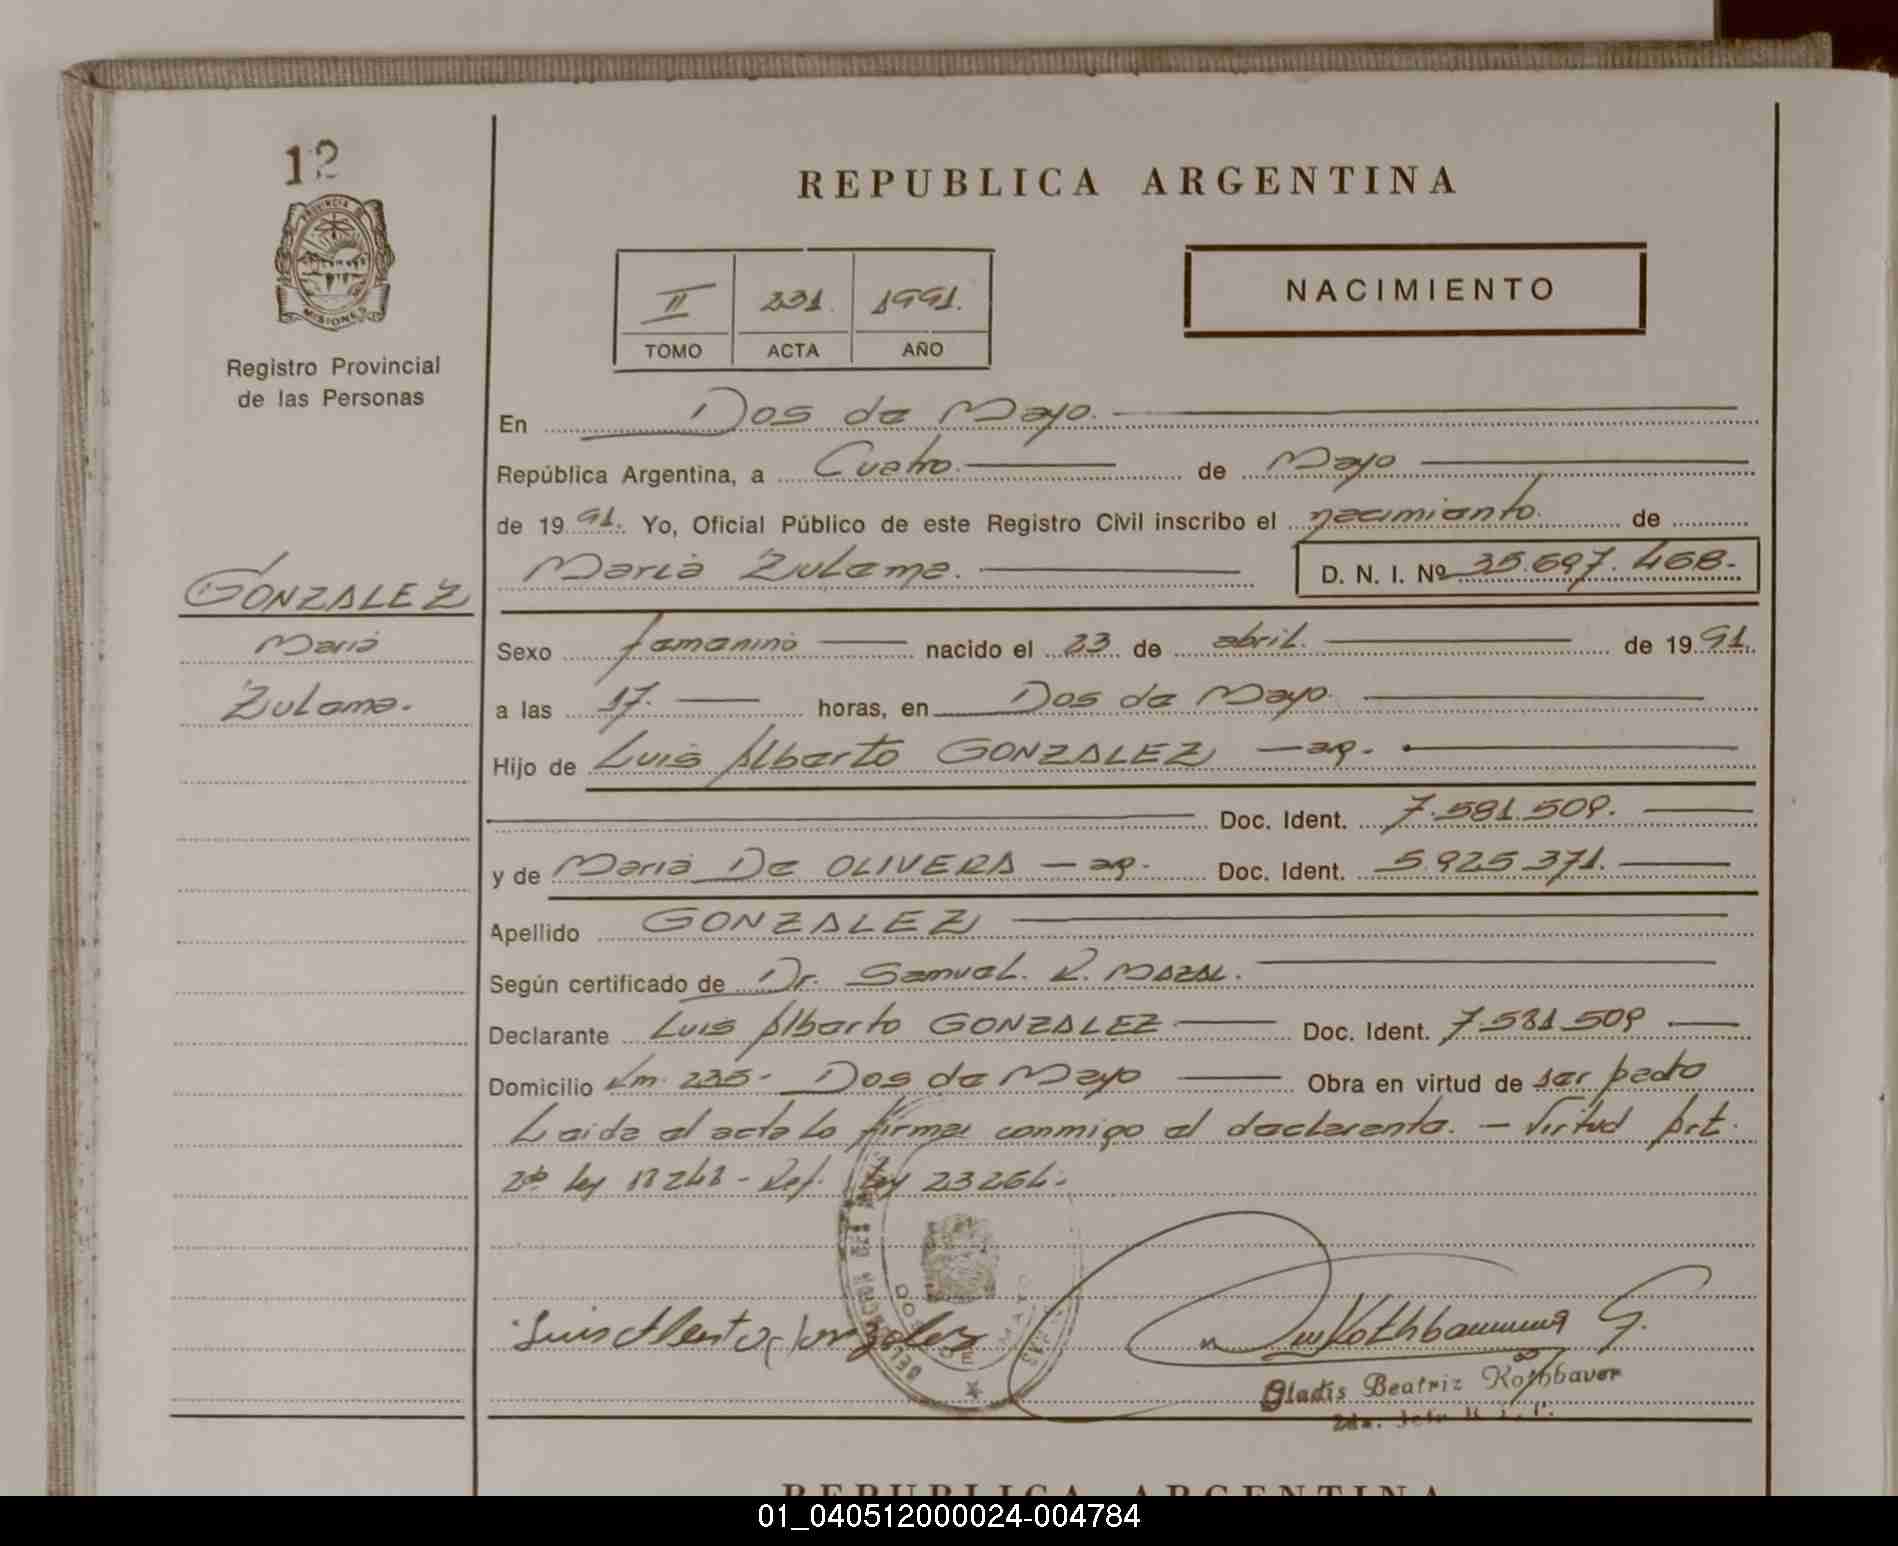 12
PROVINCIA DE
MISIONES
Registro Provincial
de las Personas
GONZALEZ
María
Zulema.
REPUBLICA ARGENTINA
II 231. 1991.
TOMO ACTA AÑO
NACIMIENTO
En Dos de Mayo.
República Argentina, a Cuatro. de Mayo
de 1991. Yo, Oficial Público de este Registro Civil inscribo el nacimiento. de
María Zulema. D. N. I. Nº 35.697.468.
Sexo femenino nacido el 23 de abril. de 1991.
a las 17. horas, en Dos de Mayo.
Hijo de Luis Alberto GONZALEZ — ag.
Doc. Ident. 7.581.509.
y de María De OLIVERA — ag. Doc. Ident. 5.925.371.
Apellido GONZALEZ
Según certificado de Dr. Samuel. R. MAZAL.
Declarante Luis Alberto GONZALEZ Doc. Ident. 7.581.509
Domicilio Km. 235- Dos de Mayo Obra en virtud de ser padre
Leida el acta lo firma conmigo el declarante. — Virtud Art.
ley 18248 - Ref. Ley 23264.
Luis Alberto Gonzalez
Gladis Beatriz Rothbauer
REPUBLICA ARGENTINA
01_040512000024-004784